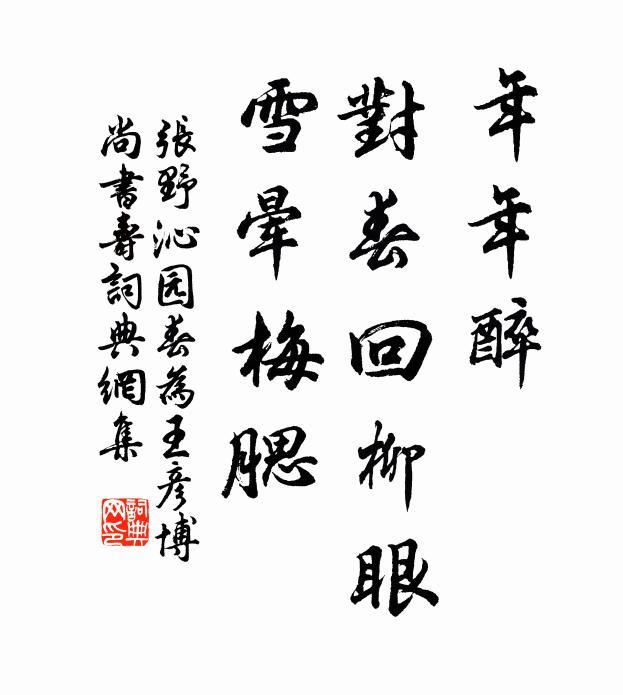 年年醉
對春回柳眼
雪暈梅腮
張野沁园春為王彥博
尚書壽詞典網集
詞典
网印